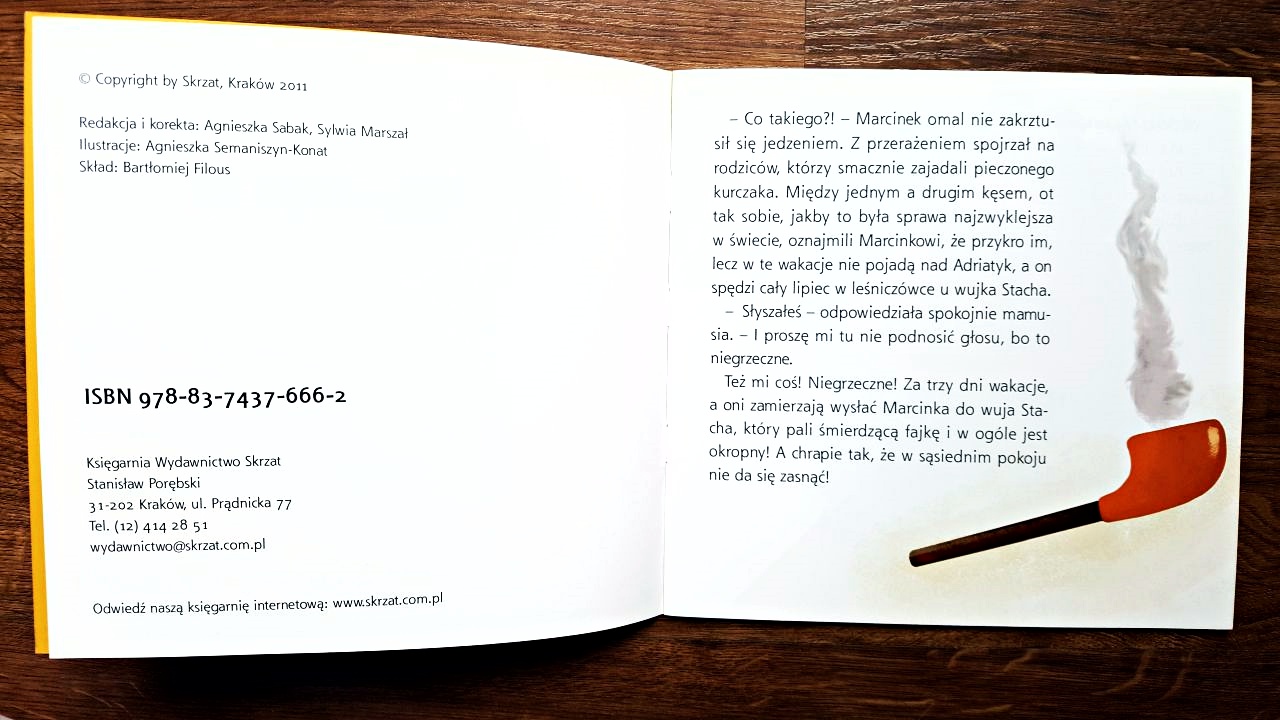 © Copyright by Skrzat, Kraków 2011
Redakcja i korekta: Agnieszka Sabak, Sylwia Marszał
Ilustracje: Agnieszka Semaniszyn-Konat
Skład: Bartłomiej Filous
ISBN 978-83-7437-666-2
Księgarnia Wydawnictwo Skrzat
Stanisław Porębski
31-202 Kraków, ul. Prądnicka 77
Tel. (12) 414 28 51
wydawnictwo@skrzat.com.pl
Odwiedź naszą księgarnię internetową: www.skrzat.com.pl
– Co takiego?! – Marcinek omal nie zakrztu-
sił się jedzeniem. Z przerażeniem spojrzał na
rodziców, którzy smacznie zajadali pieczonego
kurczaka. Między jednym a drugim kęsem, ot
tak sobie, jakby to była sprawa najzwyklejsza
w świecie, oznajmili Marcinkowi, że przykro im,
lecz w te wakacje nie pojadą nad Adriatyk, a on
spędzi cały lipiec w leśniczówce u wujka Stacha.
– Słyszałeś – odpowiedziała spokojnie mamu-
sia. – I proszę mi tu nie podnosić głosu, bo to
niegrzeczne.
Też mi coś! Niegrzeczne! Za trzy dni wakacje,
a oni zamierzają wysłać Marcinka do wuja Sta-
cha, który pali śmierdzącą fajkę i w ogóle jest
okropny! A chrapie tak, że w sąsiednim pokoju
nie da się zasnąć!